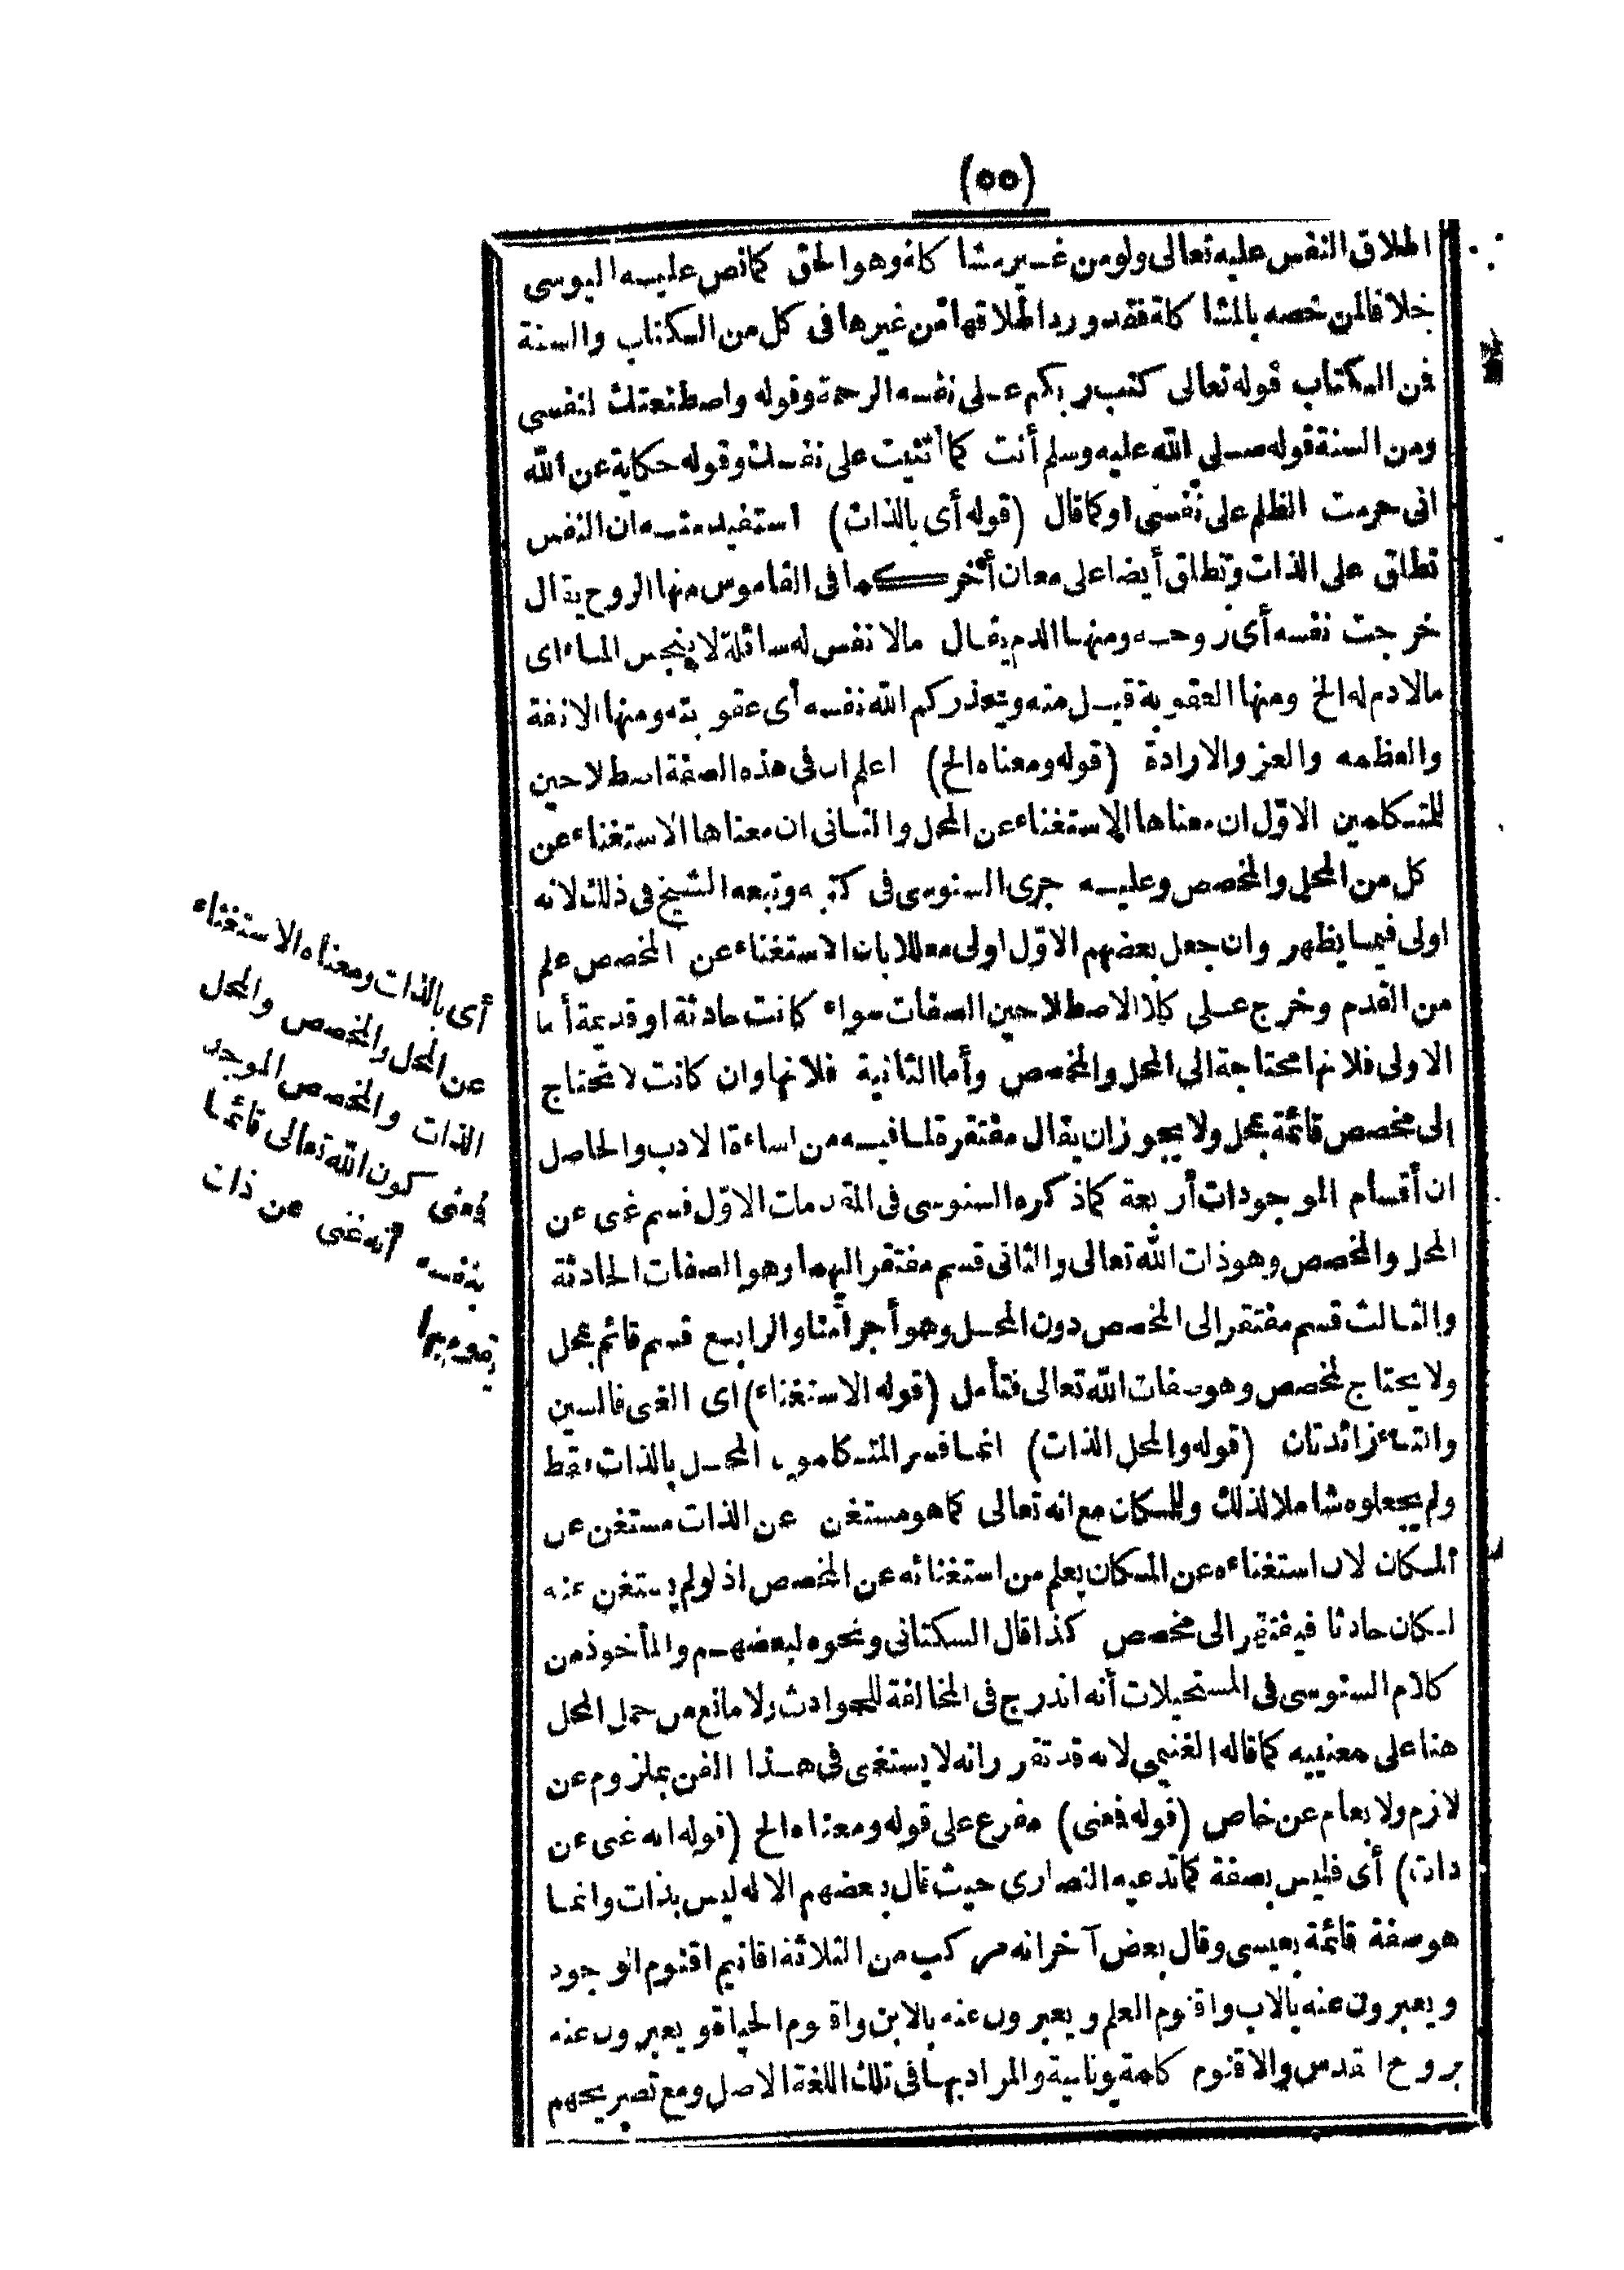 (٥٥)
اطلاق النفس عليه تعالى ولو من غير مشاكلة وهو الحق كما نص عليه اليوسى
خلافا لمن خصه بالمشاكلة فقد ورد اطلاقها من غيرها فى كل من الكتاب والسنة
فمن الكتاب قوله تعالى كتب ربكم على نفسه الرحمة وقوله واصطنعتك لنفسى
ومن السنة قوله صلى الله عليه وسلم أنت كما أثنيت على نفسك وقوله حكاية عن الله
انى حرمت الظلم على نفسى او كما قال (قوله أى بالذات) استفيد منه ان النفس
تطلق على الذات وتطلق أيضا على معان أخر كما فى القاموس منها الروح يقال
خرجت نفسه أى روحه ومنها الدم يقال مالا نفس له سائلة لا ينجس الماء اى
مالا دم له الخ ومنها العقوبة قيل منه ويحذركم الله نفسه أى عقوبته ومنها الانفة
والعظمه والعز والارادة (قوله ومعناه الخ) اعلم ان فى هذه الصفة اصطلاحين
للمتكلمين الاوّل ان معناها الاستغناء عن المحل والثانى ان معناها الاستغناء عن
كل من المحل والمخصص وعليه جرى السنوسى فى كتبه وتبعه الشيخ فى ذلك لانه
اولى فيما يظهر وان جعل بعضهم الاوّل اولى معللا بان الاستغناء عن المخصص علم
من القدم وخرج على كلا الاصطلاحين الصفات سواء كانت حادثة او قديمة أما
الاولى فلانها محتاجة الى المحل والمخصص وأما الثانية فلانها وان كانت لا تحتاج
الى مخصص قائمة بمحل ولا يجوز ان يقال مفتقرة لما فيه من اساءة الادب والحاصل
ان أقسام الموجودات أربعة كما ذكره السنوسى فى المقدمات الاوّل قسم غنى عن
المحل والمخصص وهو ذات الله تعالى والثانى قسم مفتقر اليهما وهو الصفات الحادثة
والثالث قسم مفتقر الى المخصص دون المحل وهو أجرامنا والرابع قسم قائم بمحل
ولا يحتاج لمخصص وهو صفات الله تعالى فتأمل (قوله الاستغناء) اى الغنى فالسين
والتاء زائدتان (قوله والمحل الذات) انما فسر المتكلمون المحل بالذات فقط
ولم يجعلوه شاملا لذلك وللمكان مع انه تعالى كما هو مستغن عن الذات مستغن عن
المكان لان استغناءه عن المكان يعلم من استغنائه عن المخصص اذ لو لم يستغن عنه
لكان حادثا فيفتقر الى مخصص كذا قال السكتانى ونحوه لبعضهم والمأخوذ من
كلام السنوسى فى المستحيلات أنه اندرج فى المخالفة للحوادث ولا مانع من حمل المحل
هنا على معنييه كما قاله الغنيمى لانه قد تقرر انه لا يستغنى فى هذا الفن بملزوم عن
لازم ولا بعام عن خاص (قوله فمعنى) مفرع على قوله ومعناه الخ (قوله انه غنى عن
ذات) أى فليس بصفة كما تدعيه النصارى حيث قال بعضهم الاله ليس بذات وانما
هو صفة قائمة بعيسى وقال بعض آخر انه مركب من الثلاثة اقانيم اقنوم الوجود
ويعبرون عنه بالاب واقنوم العلم ويعبرون عنه بالابن واقنوم الحياة ويعبرون عنه
بروح القدس والاقنوم كلمة يونانية والمراد بها فى تلك اللغة الاصل ومع تصريحهم
أى بالذات ومعناه الاستغناء
عن المحل والمخصص والمحل
الذات والمخصص الموجد
فمعنى كون الله تعالى قائما
بنفسه أنه غنى عن ذات
يقوم بها